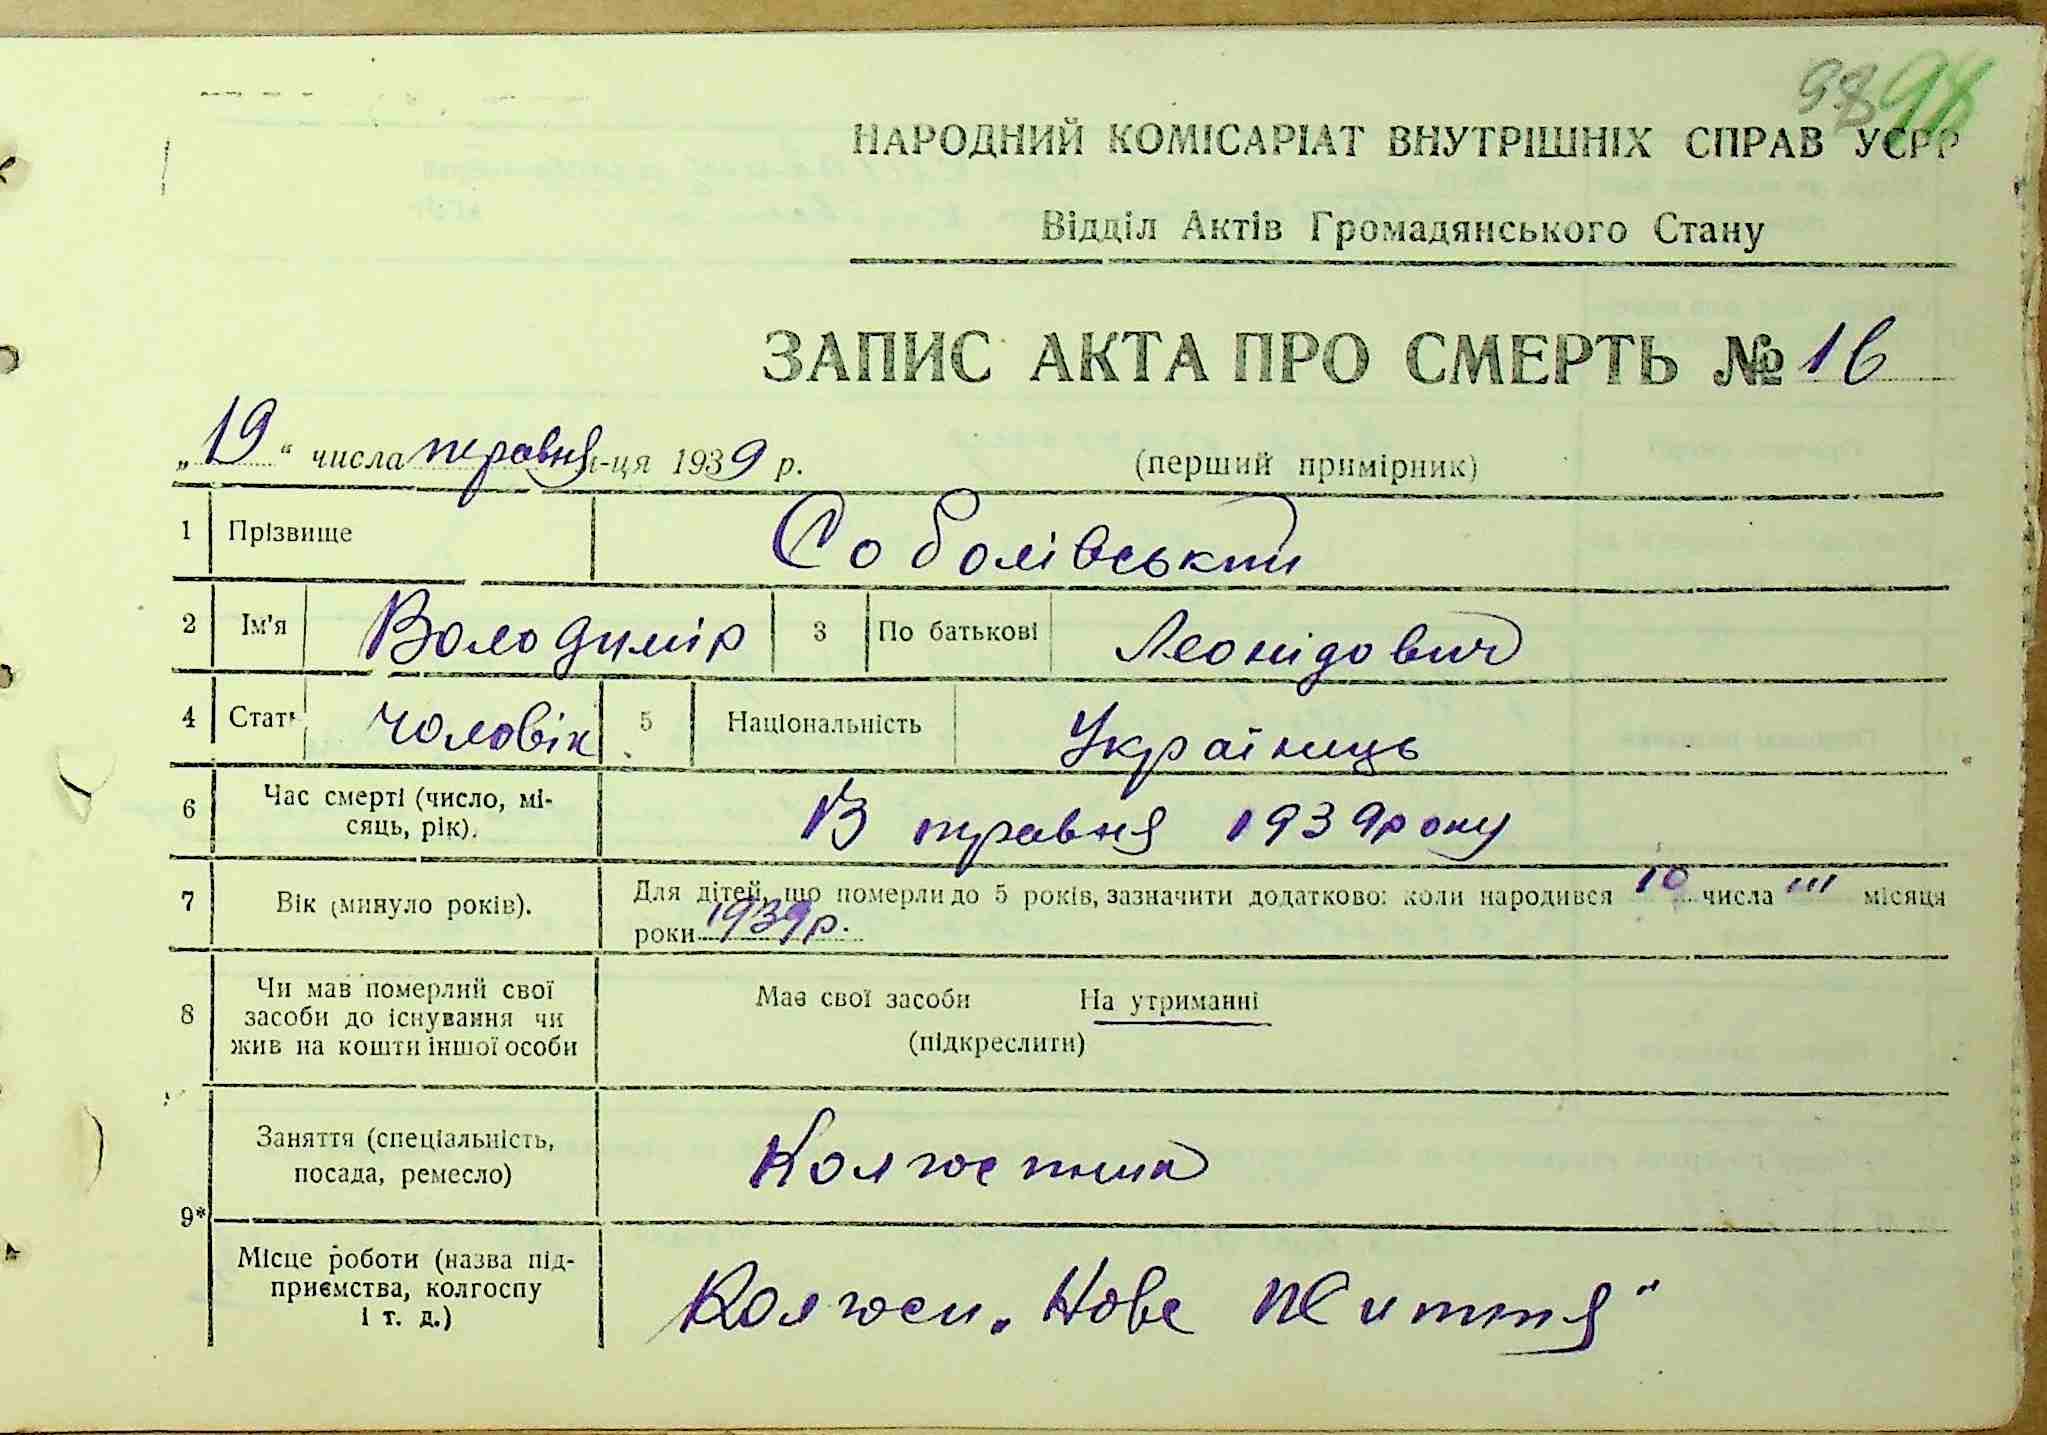 98 98
НАРОДНИЙ КОМІСАРІАТ ВНУТРІШНІХ СПРАВ УСРР
Відділ Актів Громадянського Стану
ЗАПИС АКТА ПРО СМЕРТЬ № 16
„19“ числа травня м-ця 1939 р. (перший примірник)
1 Прізвище Соболівський
2 Ім'я Володимір 3 По батькові Леонідович
4 Стать чоловік 5 Національність Українець
6 Час смерті (число, мі-
сяць, рік). 13 травня 1939 року
7 Вік (минуло років). Для дітей, що померли до 5 років, зазначити додатково: коли народився 10 числа III місяця
роки 1939 р.
8 Чи мав померлий свої
засоби до існування чи
жив на кошти іншої особи
Має свої засоби На утриманні
(підкреслити)
9* Заняття (спеціальність,
посада, ремесло) Колгоспник
Місце роботи (назва під-
приємства, колгоспу
і т. д.) Колгосп „Нове Життя"